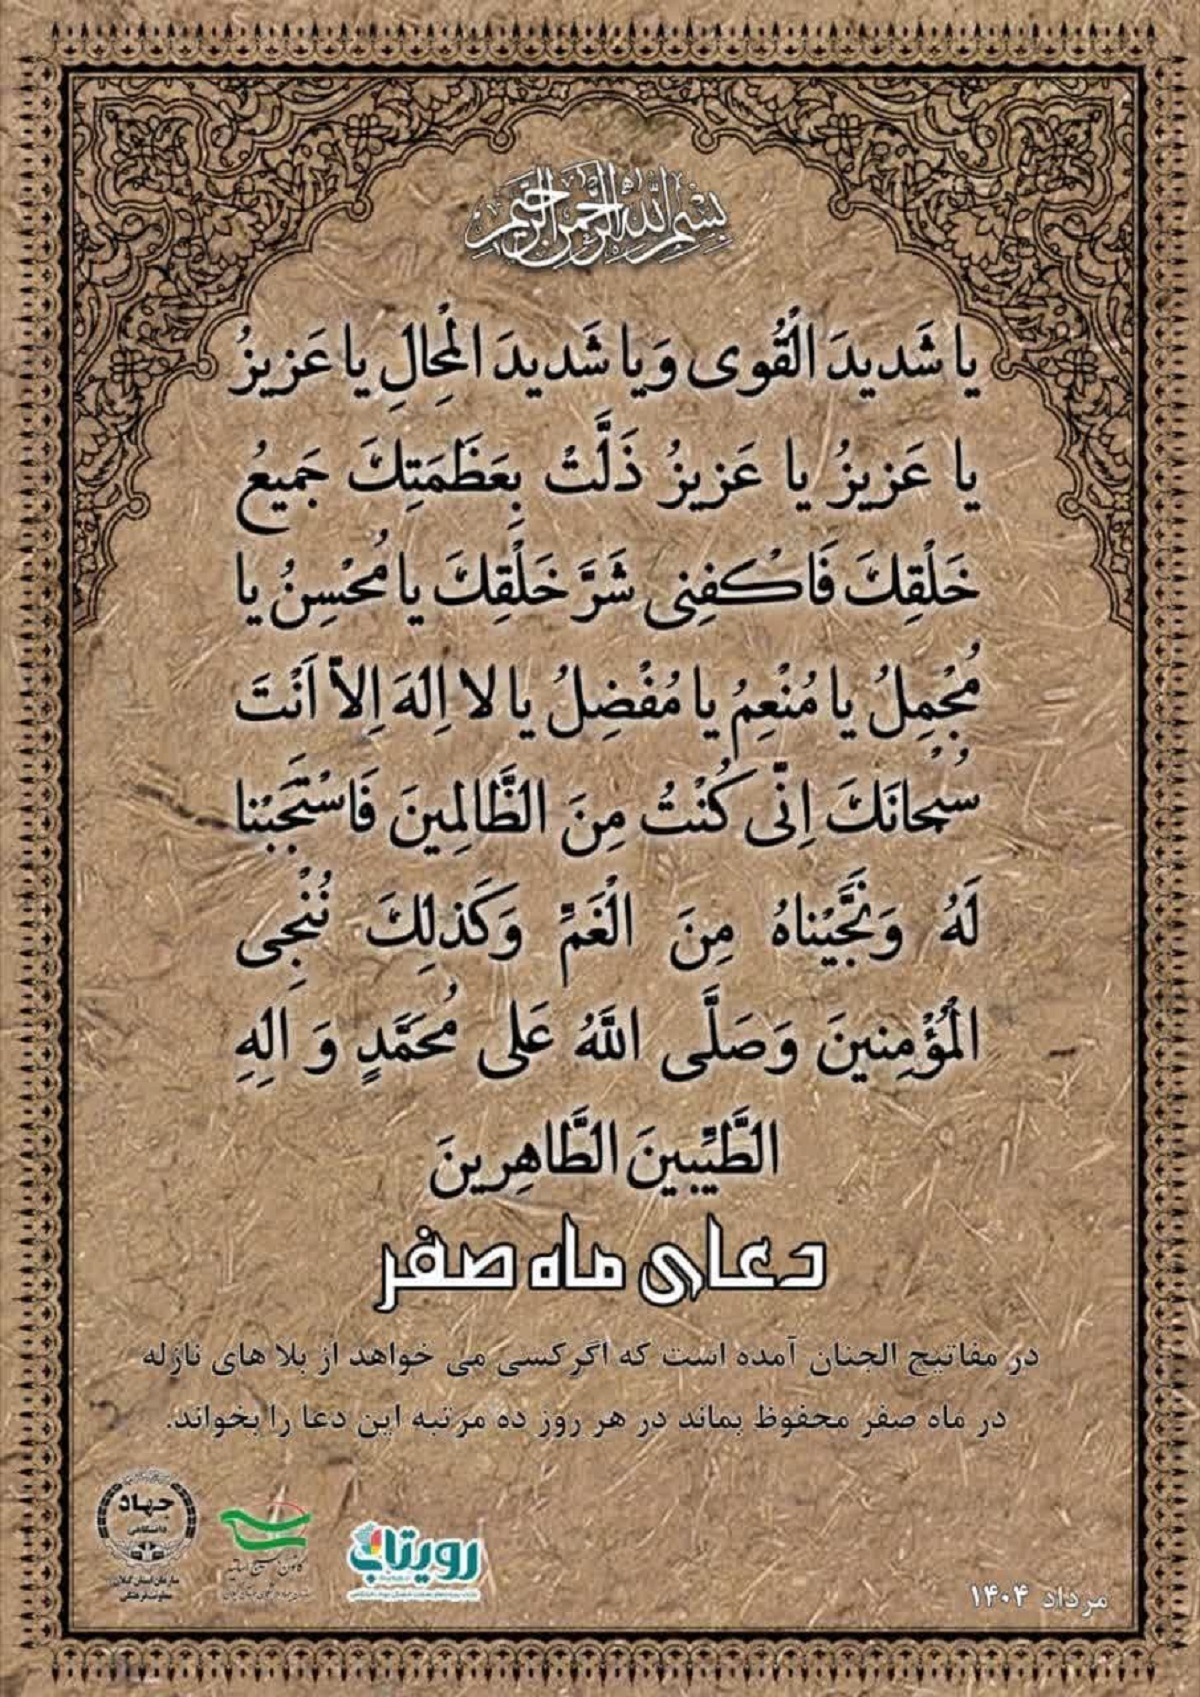 بِسْمِ اللهِ الرَّحْمنِ الرَّحِیمِ
یا شَدیدَ الْقُوی وَیا شَدیدَ الْمِحالِ یا عَزیزُ
یا عَزیزُ یا عَزیزُ ذَلَّتْ بِعَظَمَتِكَ جَمیعُ
خَلْقِكَ فَاكْفِنی شَرَّ خَلْقِكَ یا مُحْسِنُ یا
مُجْمِلُ یا مُنْعِمُ یا مُفْضِلُ یا لا اِلهَ اِلاّ اَنْتَ
سُبْحانَكَ اِنّی كُنْتُ مِنَ الظَّالِمینَ فَاسْتَجَبْنا
لَهُ وَنَجَّیْناهُ مِنَ الْغَمِّ وَكَذلِكَ نُنْجِی
الْمُؤْمِنینَ وَصَلَّی اللَّهُ عَلی مُحَمَّدٍ وَ الِهِ
الطَّیِّبینَ الطَّاهِرینَ
دعای ماه صفر
در مفاتیح الجنان آمده است که اگر کسی می خواهد از بلا های نازله
در ماه صفر محفوظ بماند در هر روز ده مرتبه این دعا را بخواند.
جهاد
دانشگاهی
سازمان استان گیلان
معاونت فرهنگی
رویتاب
مرداد ۱۴۰۴